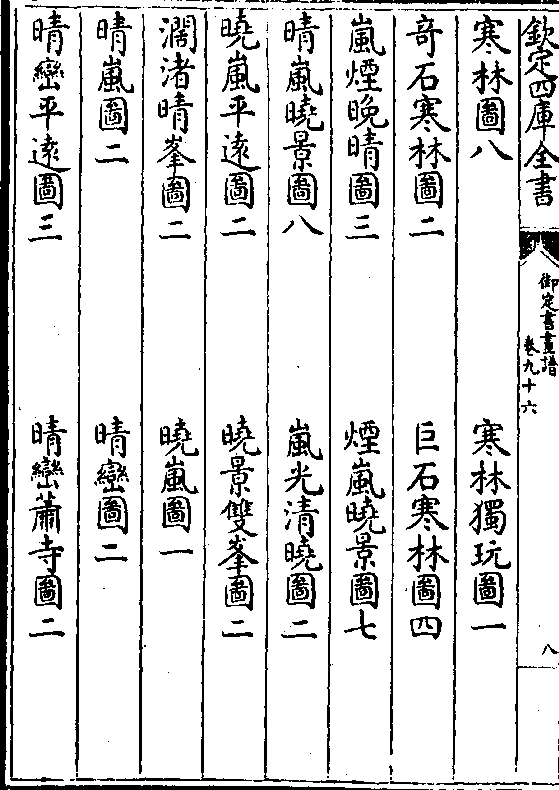 欽定四庫全書
御定書畫譜
卷九十六
八
寒林圖八
寒林獨玩圖一
奇石寒林圖二
巨石寒林圖四
嵐煙晚晴圖三
煙嵐曉景圖七
晴嵐曉景圖八
嵐光清曉圖二
曉嵐平遠圖二
曉景雙峯圖二
濶渚晴峯圖二
曉嵐圖一
晴嵐圖二
晴巒圖二
晴巒平遠圖三
晴巒蕭寺圖二